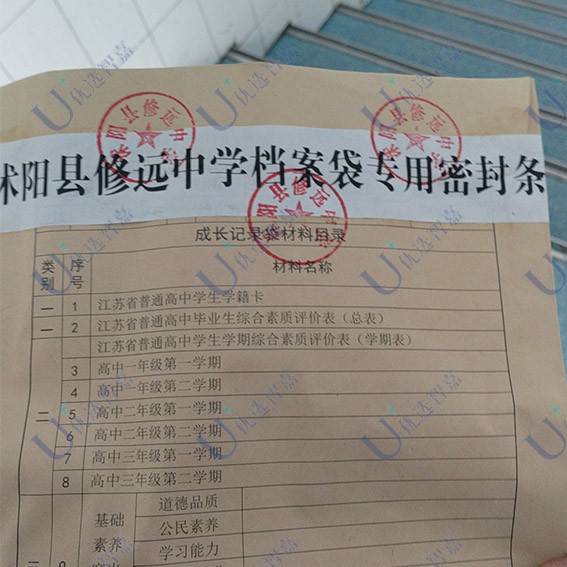 沭阳县修远中学档案袋专用密封条
沭阳县修远中学
沭阳县修远中学
沭阳县修远中学
成长记录袋材料目录
类别 序号 材料名称
一 1 江苏省普通高中学生学籍卡
一 2 江苏省普通高中毕业生综合素质评价表（总表）
江苏省普通高中学生学期综合素质评价表（学期表）
3 高中一年级第一学期
4 高中一年级第二学期
二 5 高中二年级第一学期
6 高中二年级第二学期
7 高中三年级第一学期
8 高中三年级第二学期
基础 道德品质
素养 公民素养
学习能力
U优选智嘉